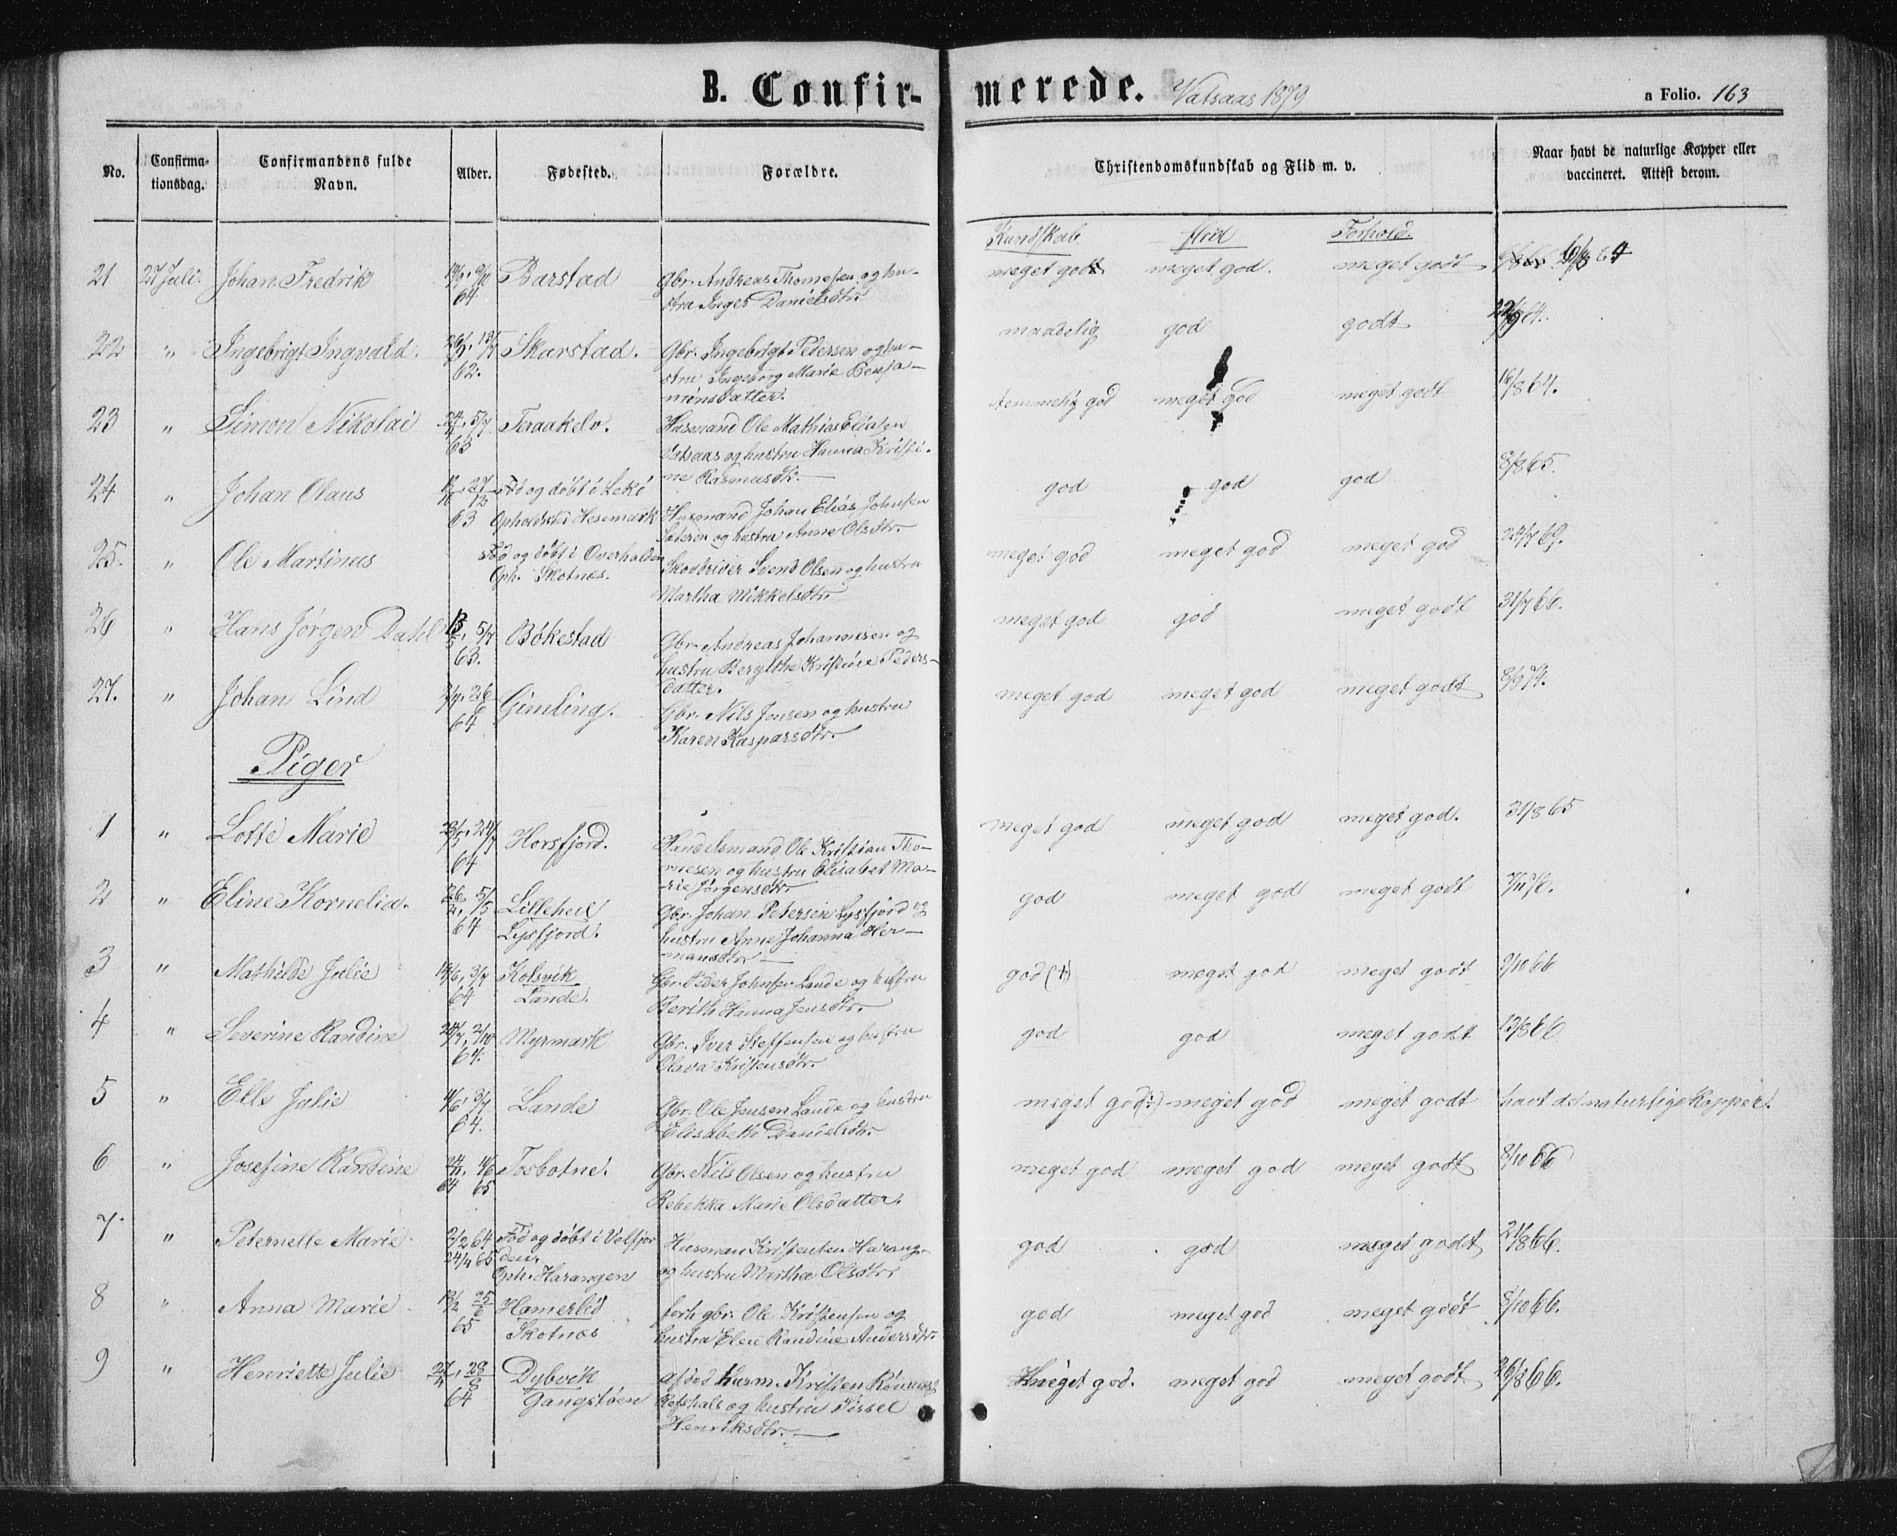 B. Confirmerede. Vatsaas 1879
a Folio. 163
No.
Confirma-
tionsdag.
Confirmandens fulde
Navn.
Alder.
Fødested.
Forældre.
Christendomskundskab og Flid m. v.
Naar havt de naturlige Kopper eller
vaccineret. Attest derom.
Kundskab Flid Forhold
21 27 Juli. Johan Fredrik 64 Barstad Gbr. Andreas Thomesen og hu-
stru Inger Danielsdtr. meget godt meget god. meget godt
22 " Ingebrigt Ingvald. 62. Skarstad. Gbr. Ingebrigt Pedersen og hu-
stru Ingeborg Marie Benja-
minsdatter. maadelig god godt
23 " Simon Nikolai 63 Teraakelv. Husmand Ole Mathias Eliasen
Vatsaas og hustru Hanna Kristi-
ne Rasmusdtr. temmelig god meget god meget godt 16/8 64.
24 " Johan Olaus 63 Fød og døbt i Lekø
Opholdsted Hesemark Husmand Johan Elias Johnsen
og hustru Anne Olsdtr. god god god 8/8 65.
25. " Ole Martinus Fød og døbt i Overhalden
Oph. Skotnes. Svend Olsen og hustru
Martha Mikkelsdtr. meget god meget god meget god 24/7 69.
26 " Hans Jørgen Dahl 5/7 63. Bøkestad Gbr. Andreas Johannesen og
hustru Bergithe Kristine Peders-
datter. meget god god meget godt 31/7 66.
27. " Johan Lind 64 Gimling. Gbr. Nils Jensen og hustru
Karen Kaspersdtr. meget god meget god meget godt
Piger
1 " Lotte Marie 64 Horsfjord. Handelsmand Ole Kristian Tho-
mesen og hustru Elisabet Ma-
rie Jørgensdtr. meget god meget god meget god. 31/8 65
2 " Eline Kornelia. 64 Lilleheil
Lysfjord. Gbr. Johan Petersen Lysfjord og
hustru Anne Johanna Her-
mansdtr. god meget god meget godt
3 " Mathilde Julie 3/7 64 Kolsvik
Lande. Gbr. Peder Johnsen Lande og hustru
Berith Hanna Jensdtr. god (+) meget god meget godt 9/10 66
4 " Severine Randine 2/10 64. Myrmark Gbr. Iver Steffensen og hustru
Olava Kristensdtr. god god meget godt 13/8 66
5 " Elle Julie 3/7 64. Lande Gbr. Ole Jensen Lande og hustru
Elisabeth Danielsdtr. meget god meget god meget godt havt de naturlige Kopper.
6 " Josefine Randine 64 65 Tosbotne. Gbr. Nils Olsen og hustru
Rebekka Marie Olsdatter. meget god meget god meget godt 8/10 66
7. " Peternelle Marie 2/2 64. 24/4 65 Fød og døbt i Velfjor
den.
Oph. Harangen Husman Kristen Harang-
og hustru Mirtha Olsdtr. god god meget godt 21/8 66.
8 " Anna Marie 65 Hamerlid
Skotnes forh. gbr. Ole Kristensen og
hustru Elen Randine Andersdtr. god meget god meget godt 8/10 66.
9 " Henriette Julie 64 Dybvik
Gangstøen afdød husm. Kristen
og hustru Sissel
Henriksdtr. meget god. meget god meget godt 26/8 66.